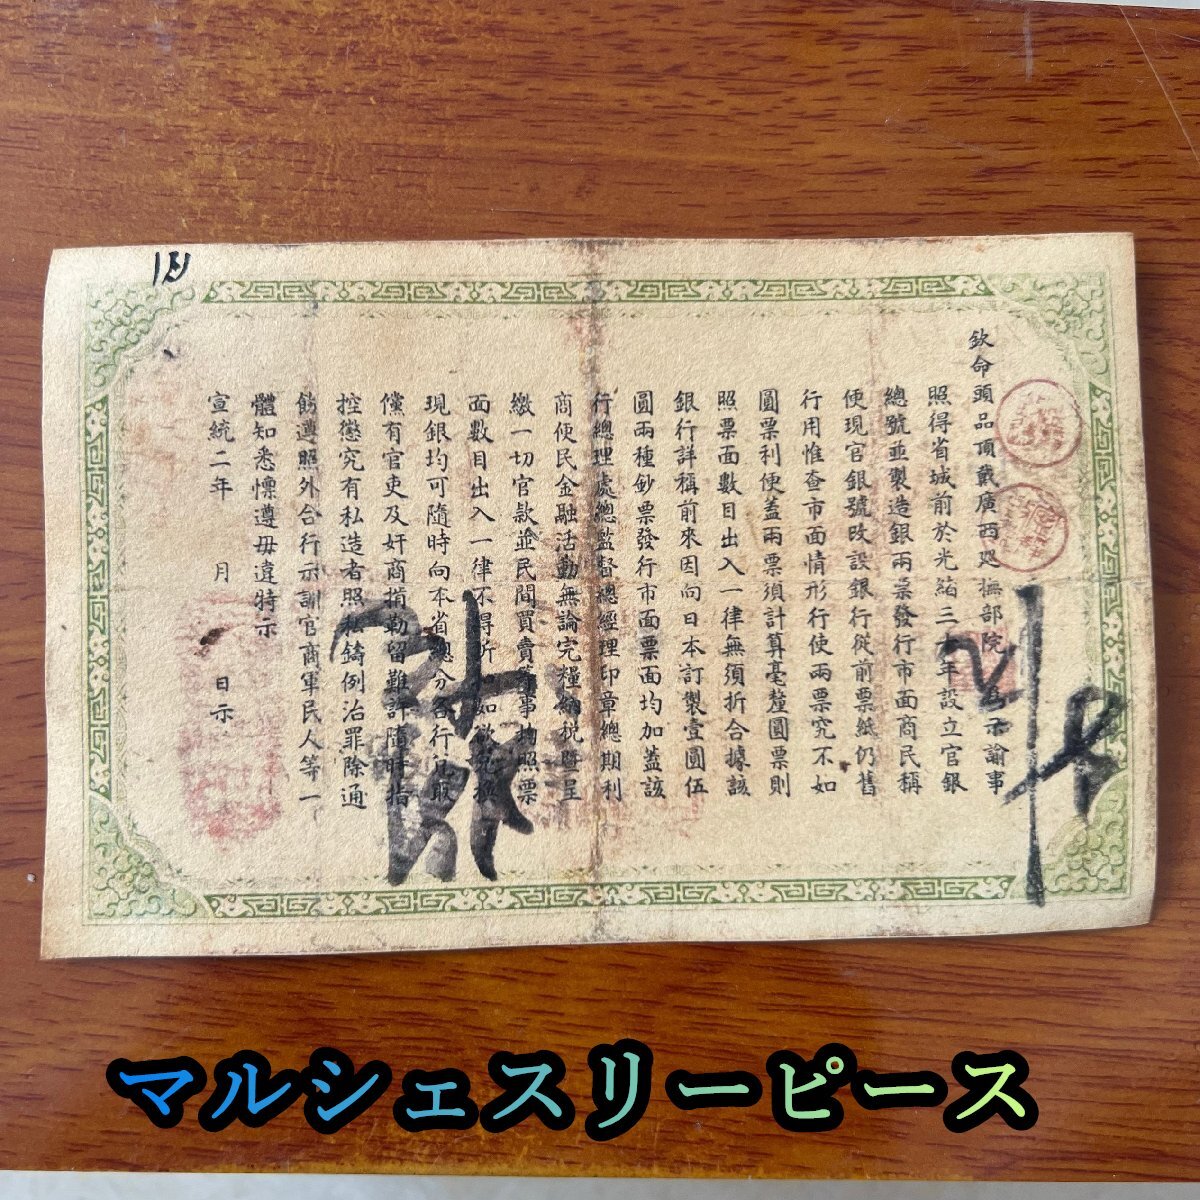 欽命頭品頂戴廣西廵撫部院 示諭事
照得省城前於光緒三十年設立官銀
總號並製造銀兩票發行市面商民稱
便現官銀號改設銀行從前票紙仍舊
行用惟查市面情形行使兩票究不如
圓票利便蓋兩票須計算毫釐圓票則
照票面數目出入一律無須折合據該
銀行詳稱前來因向日本訂製壹圓伍
圓兩種鈔票發行市面票面均加蓋該
行總理處總監督總經理印章總期利
商便民金融活動無論完糧納税曁呈
繳一切官款並民間買賣等事均照票
面數目出入一律不得折 如欲兌換
現銀均可隨時向本省總分各行兌取
儻有官吏及奸商掯勒留難許隨時指
控懲究有私造者照私鑄例治罪除通
飭遵照外合行示訓官商軍民人等一
體知悉懍遵毋違特示
宣統二年 月 日示
マルシェスリーピース